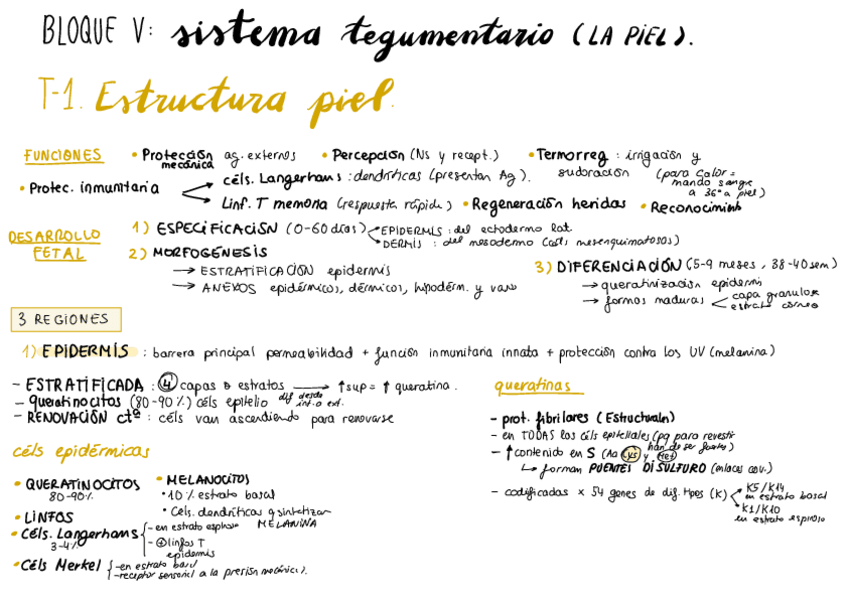 BLOQUE V: sistema tegumentario (LA PIEL).
T-1. Estructura piel.
FUNCIONES • Protección mecánica ag. externos • Percepción (Ns y recept.) • Termorreg: irrigación y sudoración (para calor = mando sangre a 36° a piel)
• Protec. inmunitaria
céls. Langerhans: dendríticas (presentan Ag).
Linf. T memoria (respuesta rápida) • Regeneración heridas • Reconocimiento
DESARROLLO FETAL
1) ESPECIFICACIÓN (0-60 días)
EPIDERMIS: del ectodermo lat.
DERMIS: del mesodermo (céls mesenquimatosas)
2) MORFOGÉNESIS
→ ESTRATIFICACIÓN epidermis
→ ANEXOS epidérmicos, dérmicos, hipoderm. y vasc
3) DIFERENCIACIÓN (5-9 meses, 38-40 sem)
→ queratinización epidermis
→ formas maduras
capa granulosa
estrato córneo
3 REGIONES
1) EPIDERMIS: barrera principal permeabilidad + función inmunitaria innata + protección contra los UV (melanina)
- ESTRATIFICADA: 4 capas o estratos → ↑sup = ↑ queratina.
- queratinocitos (80-90%) céls epitelio dif desde int. a ext.
- RENOVACIÓN cta: céls van ascendiendo para renovarse
céls epidérmicas
• QUERATINOCITOS
80-90%
• LINFOS
• Céls. Langerhans
3-4%
- en estrato espinoso
- ⊕ linfos T epidermis
• Céls Merkel
- en estrato basal
- receptor sensorial a la presión mecánica).
• MELANOCITOS
• 10% estrato basal
• Cels. dendríticas q sintetizan MELANINA
queratinas
- prot. fibrilares (Estructuraln)
- en TODAS las céls epiteliales (pq para revestir han de ser fuertes)
- ↑contenido en S (Aa Cys y Met)
↳ forman PUENTES DISULFURO (enlaces cov.)
- codificadas x 54 genes de dif. tipos (K)
K5/K14
en estrato basal
K1/K10
en estrato espinoso